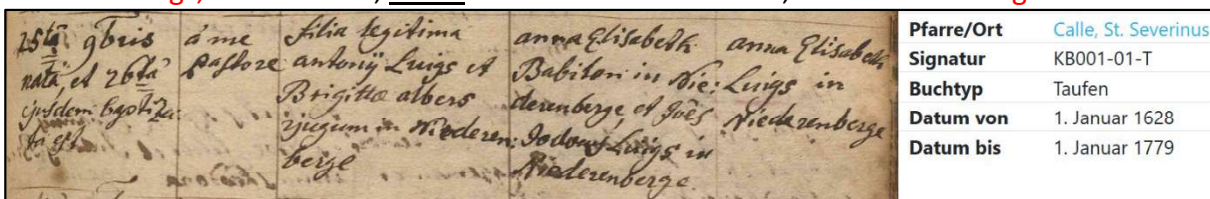 25ta 9bris
nata, et 26ta
ejusdem baptiza
ta est
a me
pastore
filia legitima
antonij Luigs et
Brigittæ albers
jugum in Niederen:
berge
anna Elisabeth
Babilon in Nie:
derenberge et Joës
Jodocus Luigs in
Niederenberge
anna Elisabeth
Luigs in
Niederenberge
Pfarre/Ort Calle, St. Severinus
Signatur KB001-01-T
Buchtyp Taufen
Datum von 1. Januar 1628
Datum bis 1. Januar 1779